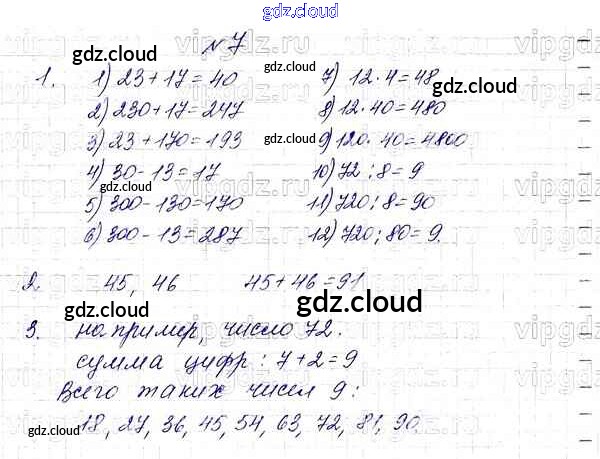 gdz.cloud
№ 7
1. 1) 23 + 17 = 40
2) 230 + 17 = 247
3) 23 + 170 = 193
4) 30 - 13 = 17
5) 300 - 130 = 170
6) 300 - 13 = 287
7) 12 · 4 = 48
8) 12 · 40 = 480
9) 120 · 40 = 4800
10) 72 : 8 = 9
11) 720 : 8 = 90
12) 720 : 80 = 9.
2. 45, 46 45 + 46 = 91
3. например, число 72.
сумма цифр: 7 + 2 = 9
Всего таких чисел 9:
18, 27, 36, 45, 54, 63, 72, 81, 90
gdz.cloud
gdz.cloud
gdz.cloud
gdz.cloud
gdz.cloud
gdz.cloud
gdz.cloud
gdz.cloud
gdz.cloud
gdz.cloud